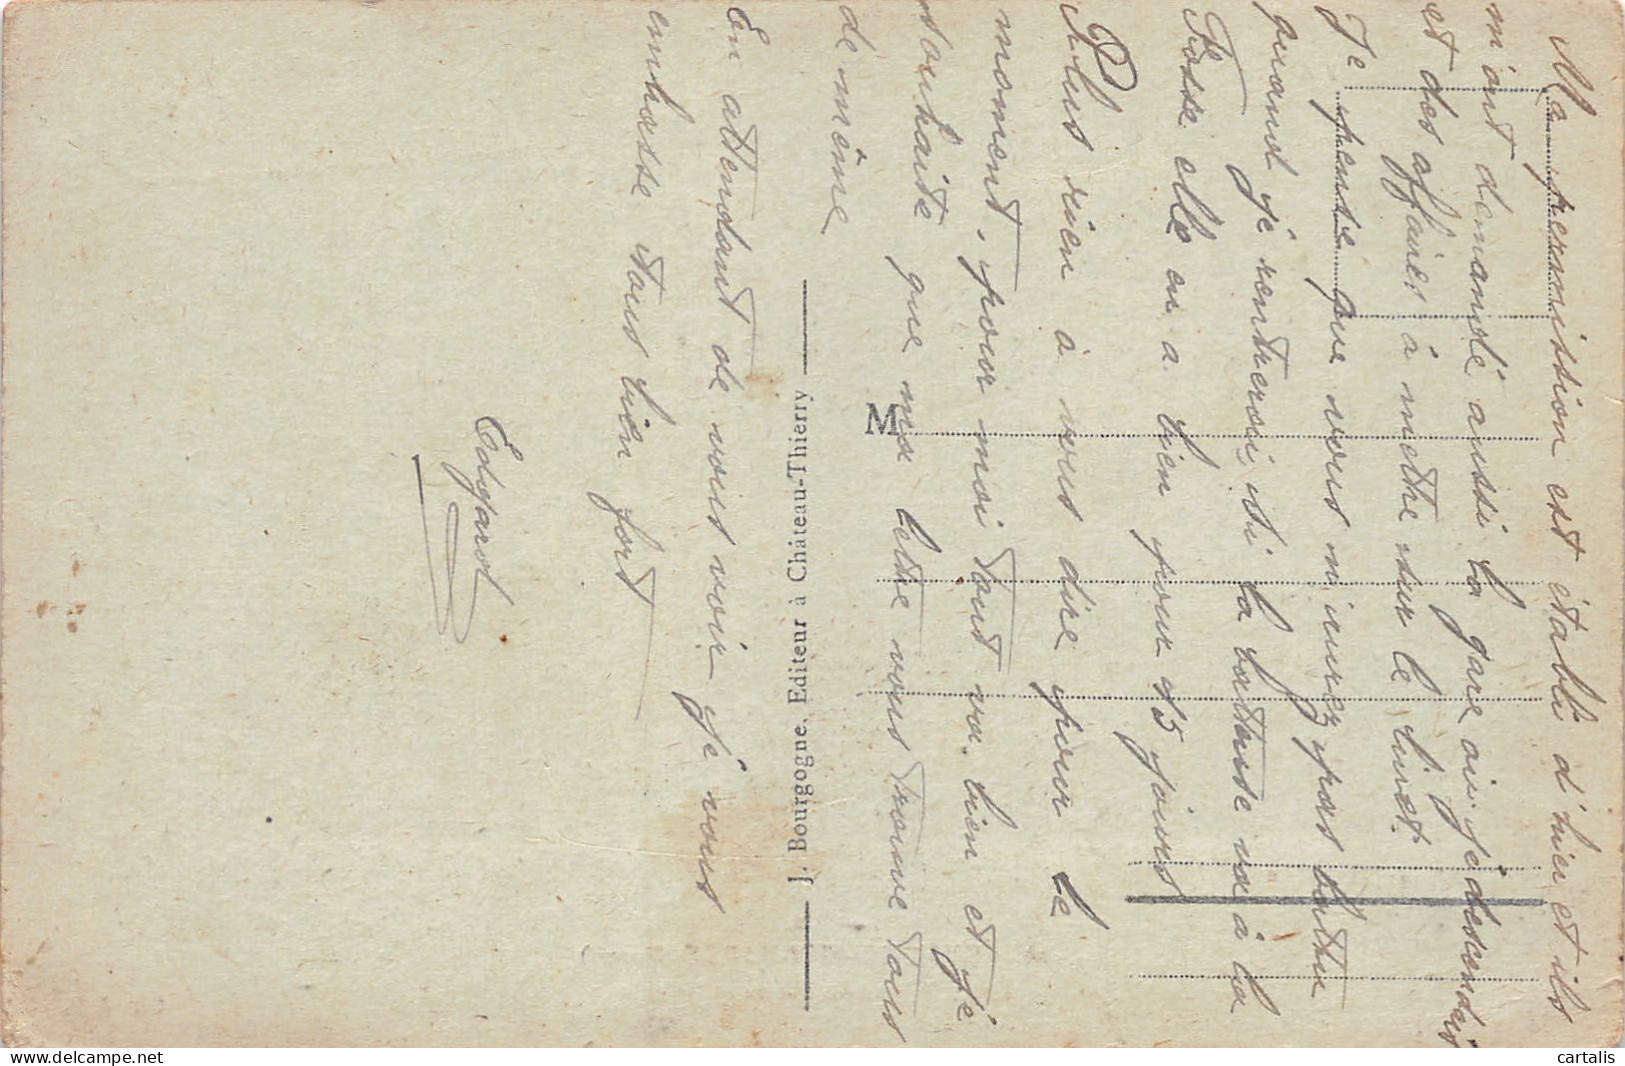 Ma permission est établi d'hier et ils
m'ont demandé aussi la gare où je descendais
et des affaires à mettre sur le livret.
Je pense que vous m'aurez pas battu
quand je rentrerai, si la batteuse va à la
Fosse elle en a bien pour 15 jours
Plus rien à vous dire pour le
moment, pour moi tout va bien et je
souhaite que ma lettre vous trouve tous
de même
En attendant de vous voir je vous
embrasse tous bien fort
Edgard
J. Bourgogne, Editeur à Château-Thierry
M
cartalis